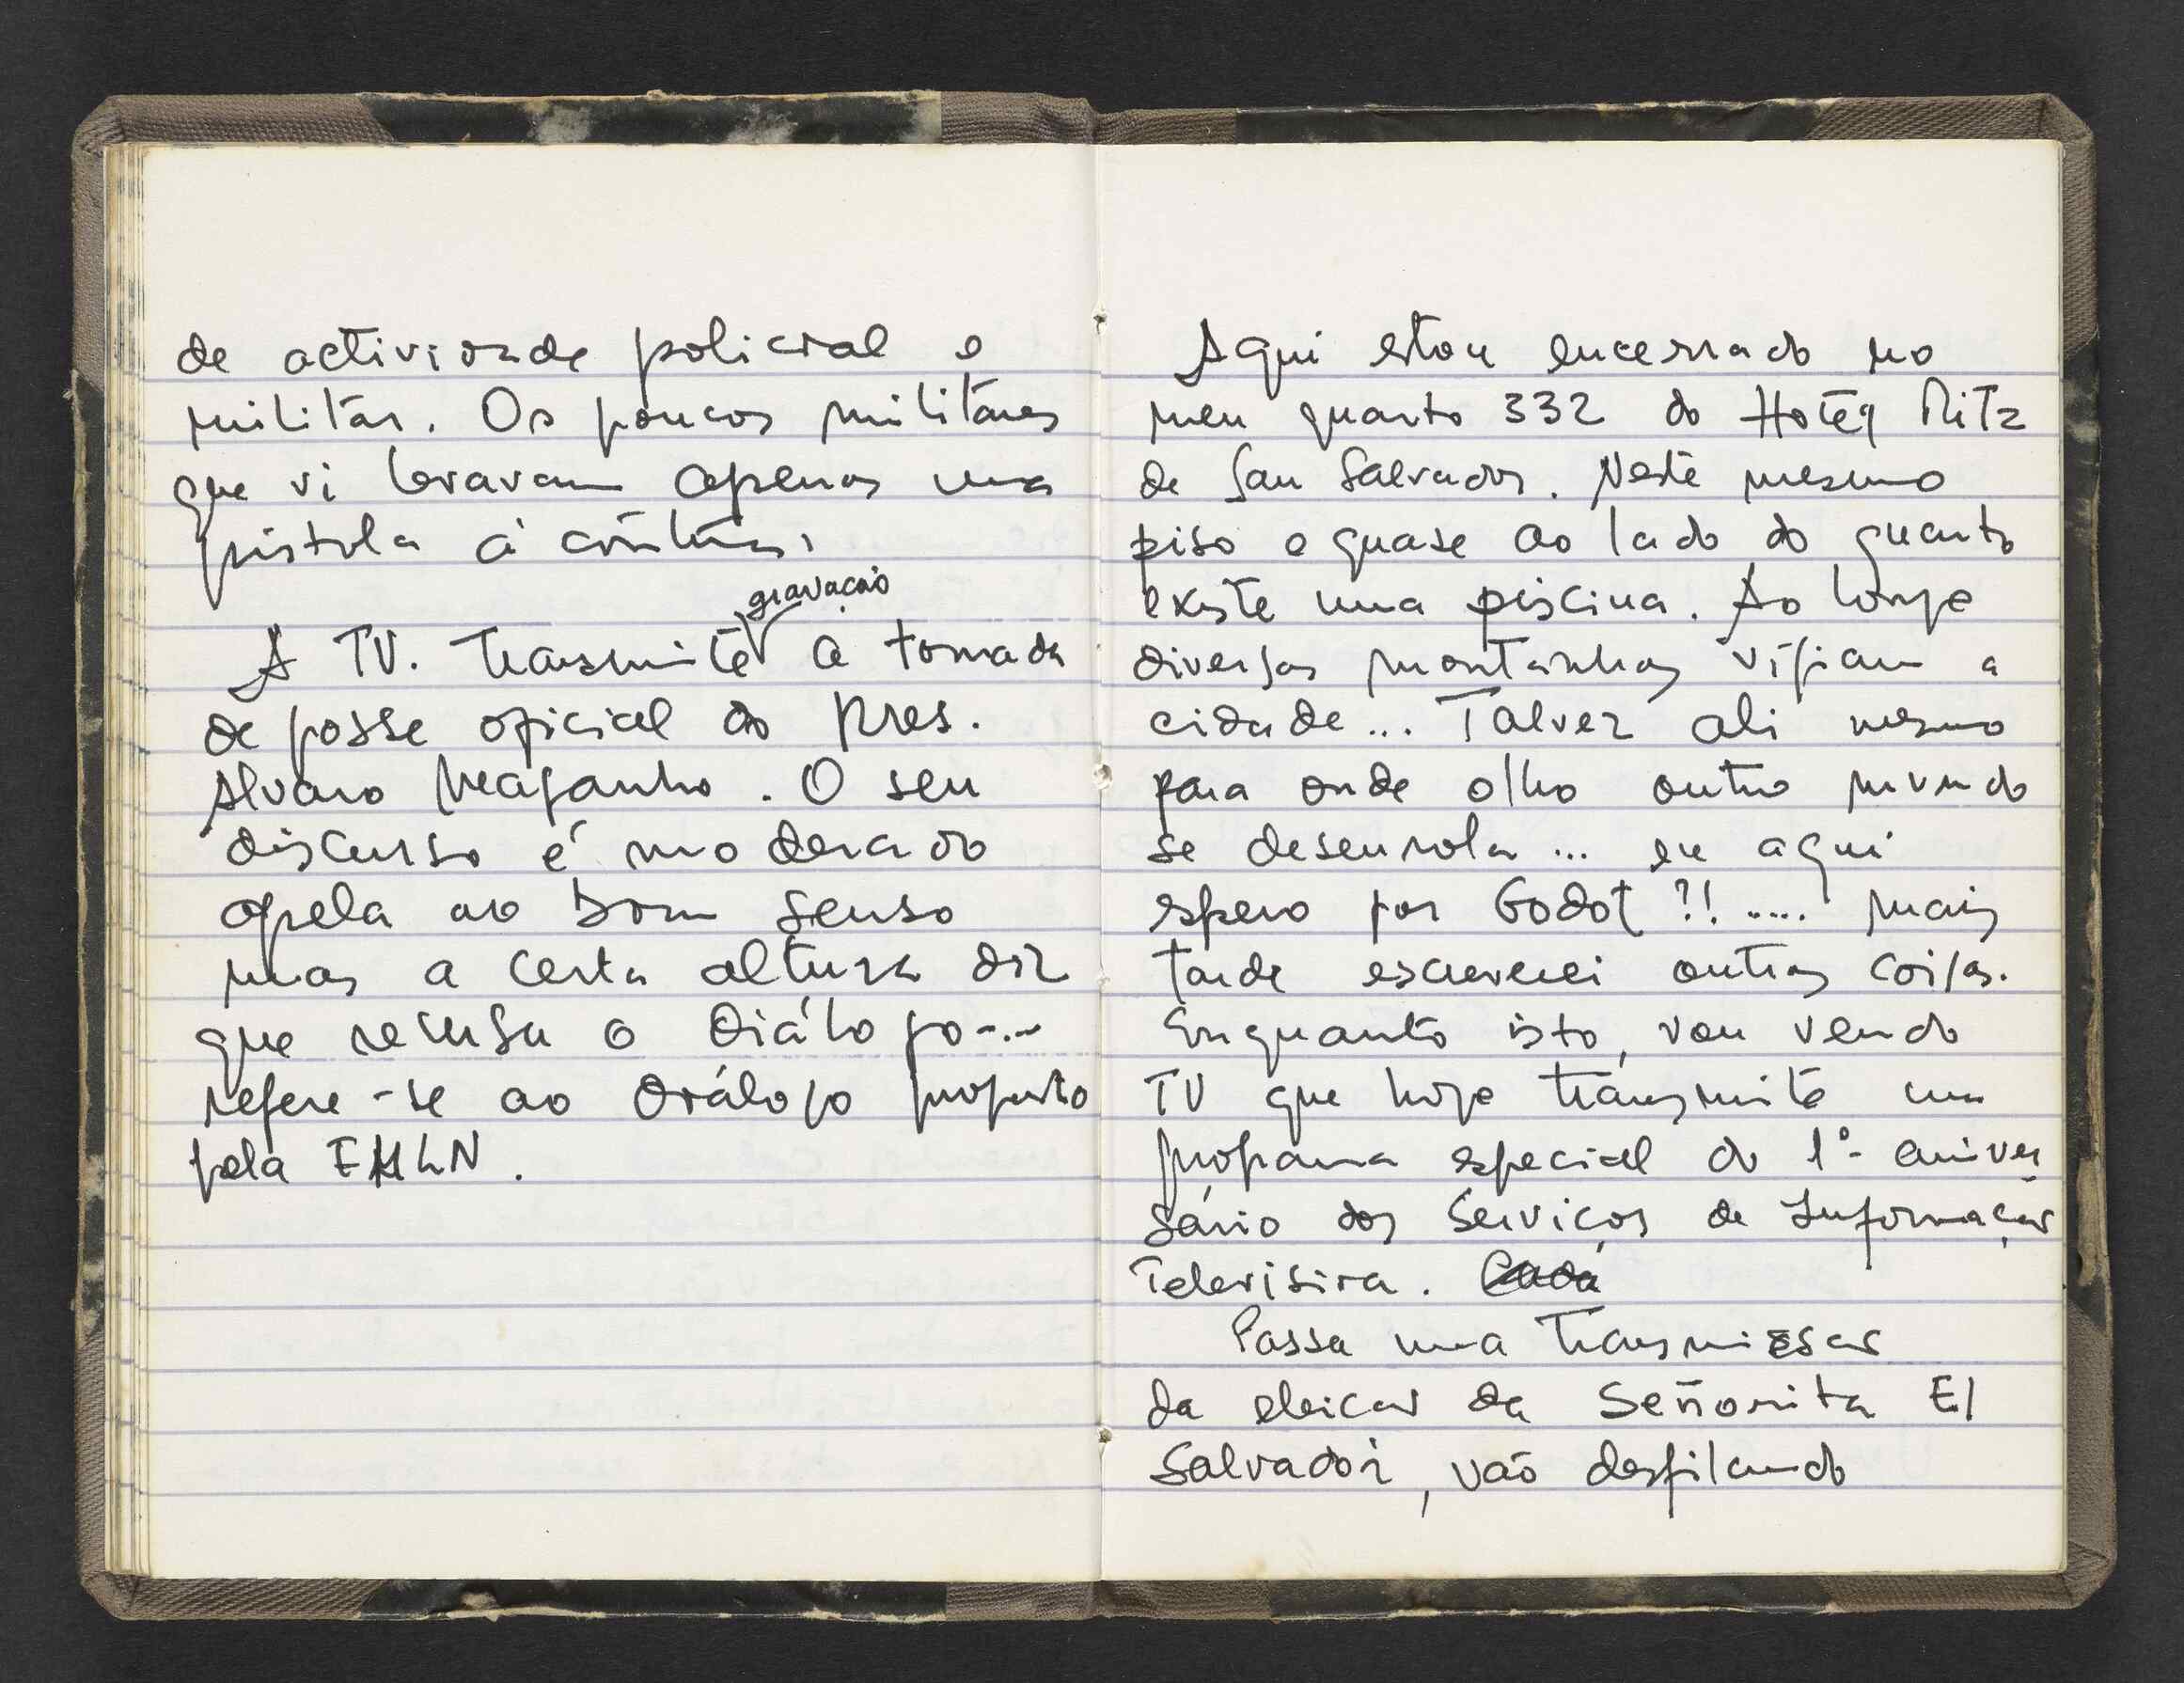 de actividade policial e
militar. Os poucos militares
que vi levavam apenas uma
pistola à cintura.
gravação
A TV. transmite a tomada
de posse oficial do Pres.
Alvaro Maganho. O seu
discurso é moderado
apela ao bom senso
mas a certa altura diz
que recusa o diálogo...
refere-se ao diálogo proposto
pela FMLN.
Aqui estou encerrado no
meu quarto 332 do Hotel Ritz
de San Salvador. Neste mesmo
piso e quase ao lado do quarto
existe uma piscina. Ao longe
diversas montanhas vigiam a
cidade... Talvez ali mesmo
para onde olho outro mundo
se desenrola... eu aqui
espero por Godot?!..... mais
tarde escreverei outras coisas.
Enquanto isto, vou vendo
TV que hoje transmite um
programa especial do 1º aniver
sário dos Serviços de Informação
Televisiva.
Passa uma transmissão
da eleição da Señorita El
Salvador, vão desfilando